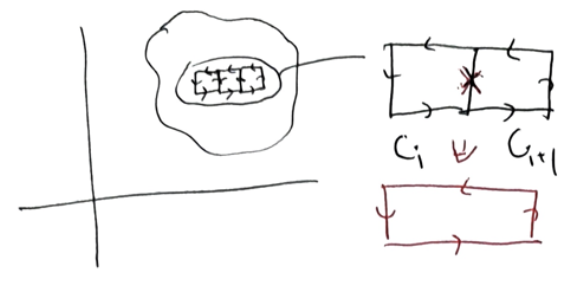 Cᵢ Cᵢ₊₁